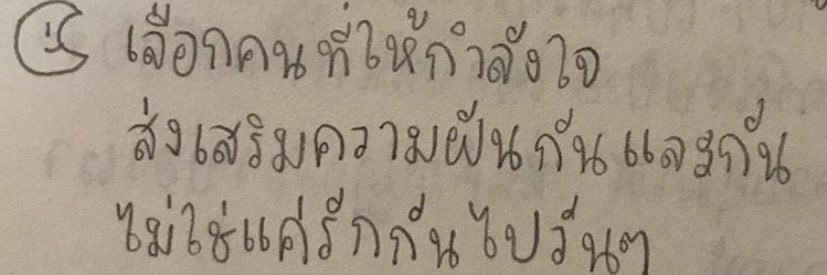 เลือกคนที่ให้กำลังใจ
ส่งเสริมความฝันกันและกัน
ไม่ใช่แค่รักกันไปวันๆ